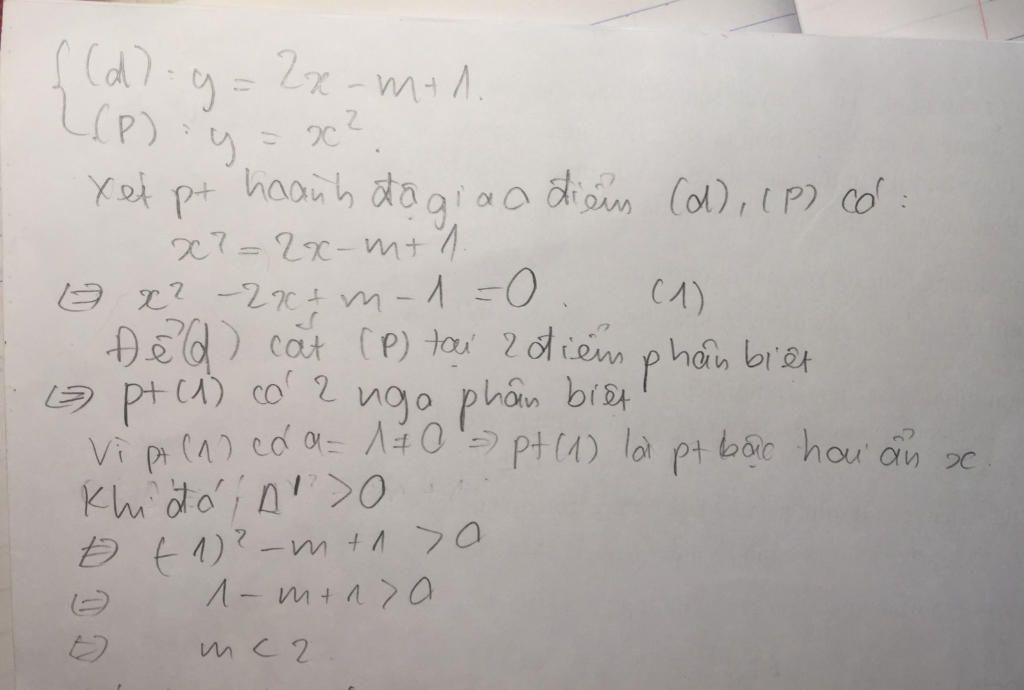 (d) : y = 2x - m + 1.
(P) : y = x².
Xét pt hoành độ giao điểm (d), (P) có :
x² = 2x - m + 1.
⇔ x² - 2x + m - 1 = 0. (1)
Để (d) cắt (P) tại 2 điểm phân biệt
⇔ pt (1) có 2 ngo phân biệt
Vì pt (1) có a = 1 ≠ 0 ⇒ pt (1) là pt bậc hai ẩn x.
Khi đó, Δ' > 0
⇔ (-1)² - m + 1 > 0
⇔ 1 - m + 1 > 0
⇔ m < 2.